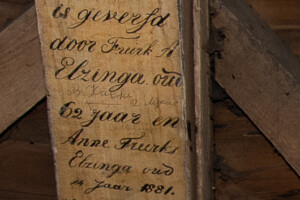 is geverfd
door Fuurk A
Elzinga oud
62 Jaar en
Anne Fuurks
Elzinga oud
14 Jaar 1881.